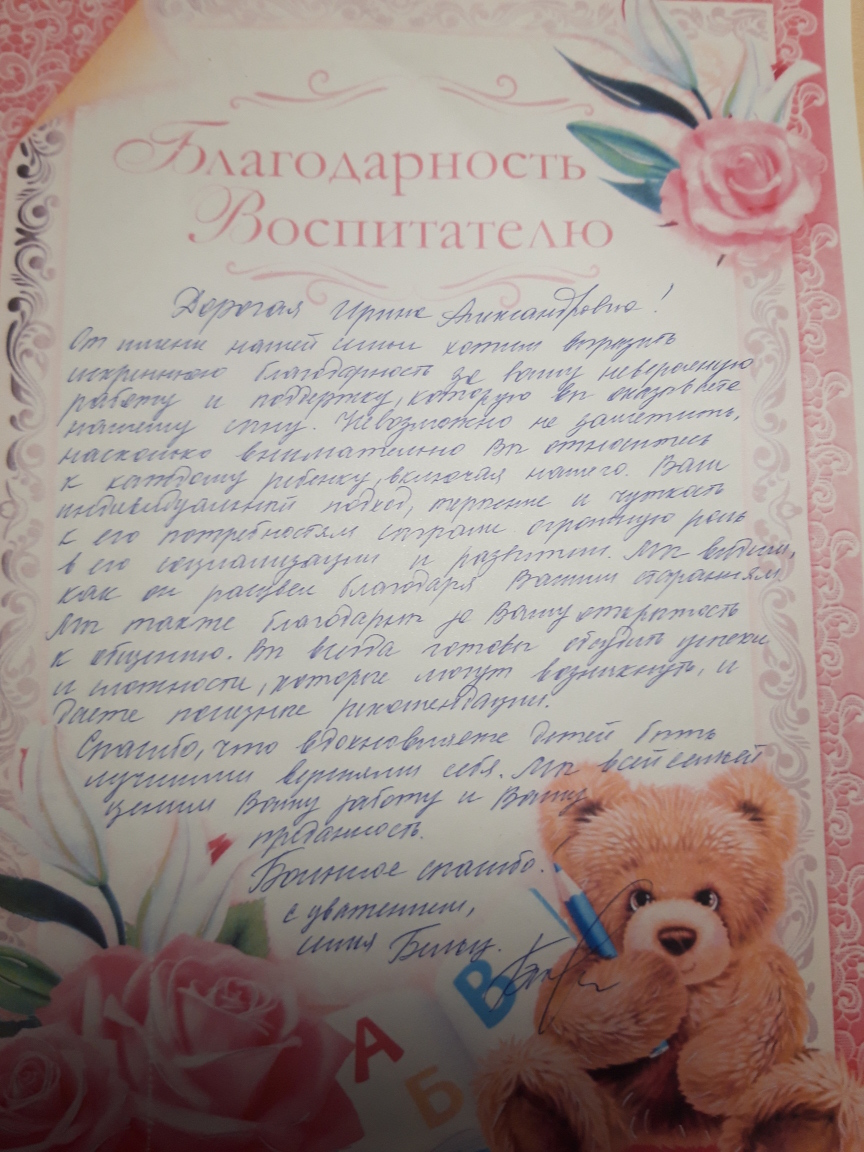 Благодарность
Воспитателю
Дорогая Ирина Александровна!
От имени нашей семьи хотим выразить
искреннюю благодарность за вашу невероятную
работу и поддержку, которую вы оказываете
нашему сыну. Невозможно не заметить,
насколько внимательно Вы относитесь
к каждому ребенку, включая нашего. Ваш
индивидуальный подход, терпение и чуткость
к его потребностям сыграли огромную роль
в его социализации и развитии. Мы видим,
как он расцвел благодаря Вашим стараниям.
Мы также благодарны за Вашу открытость
к общению. Вы всегда готовы обсудить успехи
и сложности, которые могут возникнуть, и
даете полезные рекомендации.
Спасибо, что вдохновляете детей быть
лучшими версиями себя. Мы всей семьей
ценим Вашу работу и Вашу
преданность.
Большое спасибо.
с уважением,
семья
В
А
Б